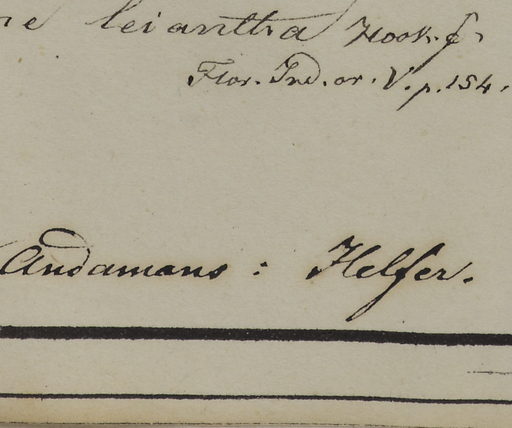 leiantha Hook. f.
Flor. Ind. or. V. p. 154.
Andamans: Helfer.